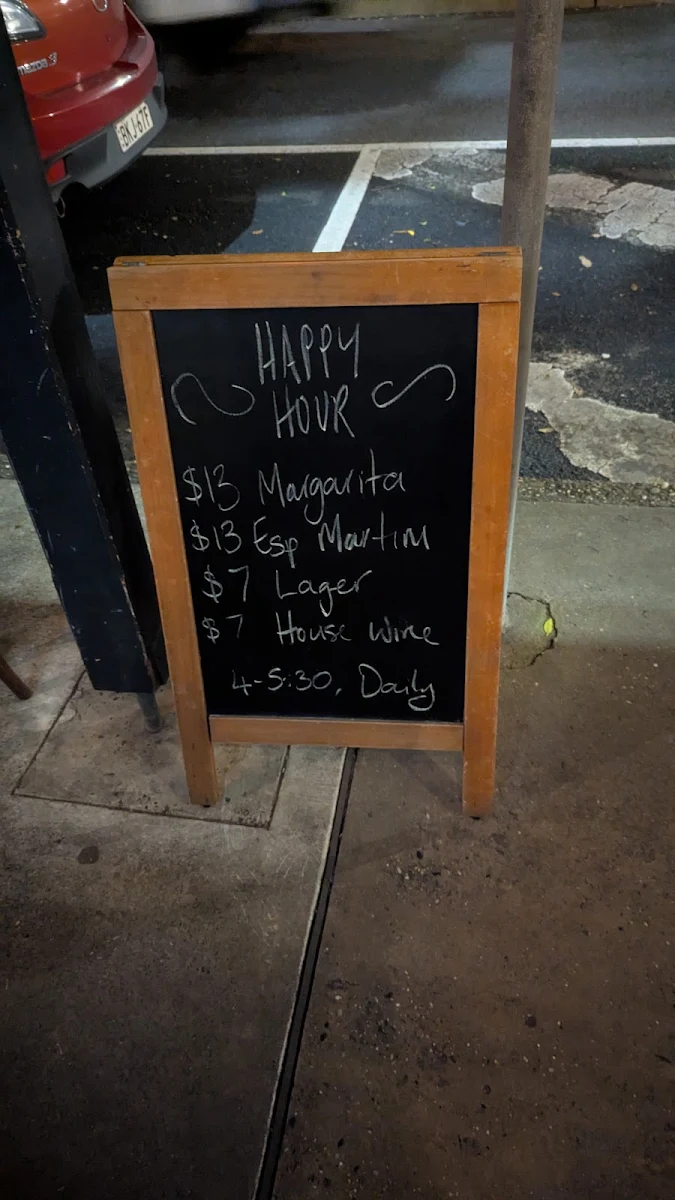 mazda 3
BKJ·67F
HAPPY
HOUR
$13 Margarita
$13 Esp Martini
$7 Lager
$7 House wine
4-5:30, Daily